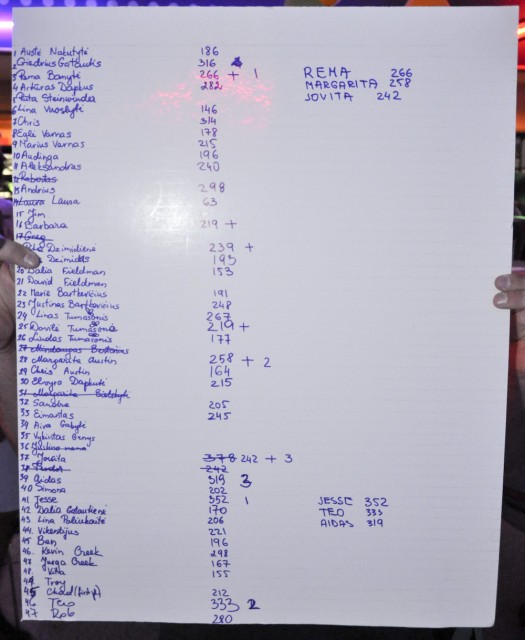 1 Austė Nakutytė 186
2 Giedrius Gotautis 316 4
3 Rema Bamytė 266 + 1
4 Artūras Dapkus 282
REMA 266
MARGARITA 258
JOVITA 242
5 Rūta Steinwinder
6 Lina Vuoslytė 146
7 Chris 314
8 Eglė Varnas 178
9 Marius Varnas 215
10 Audinga 196
11 Aleksandras 240
12 Robertas
13 Andrius 298
14 Laura Lausa 63
15 Jim
16 Barbara 219 +
17 Greg
Dzimidienė 239 +
Dzimidas 193
20 Dalia Fieldman 153
21 David Fieldman
22 Marie Bartkevičius 191
23 Justinas Bartkevičius 248
24 Linas Tumasonis 267
25 Dovilė Tumasonis 219 +
26 Liudas Tumasonis 177
27 Mindaugas
28 Margarita Austin 258 + 2
29 Chris Austin 164
30 Elvyra Dapkutė 215
31 Margarita
32 Sandra 205
33 Eimantas 245
34 Aiva Gabytė
35 Vykintas Genys
36 Justino mama
37 Jovita 378 242 + 3
38 242
39 Aidas 319 3
40 Simona 202
41 Jesse 352 1
42 Dalia Gotautienė 170
43 Lina Paliukaitė 206
JESSE 352
TEO 333
AIDAS 319
44. Vikentijus 221
45 Ben 196
46. Kevin Creek 298
47 Jurga Creek 167
48. Vita 155
44 Troy
45 Chad 212
46 Teo 333 2
47 Rob 280